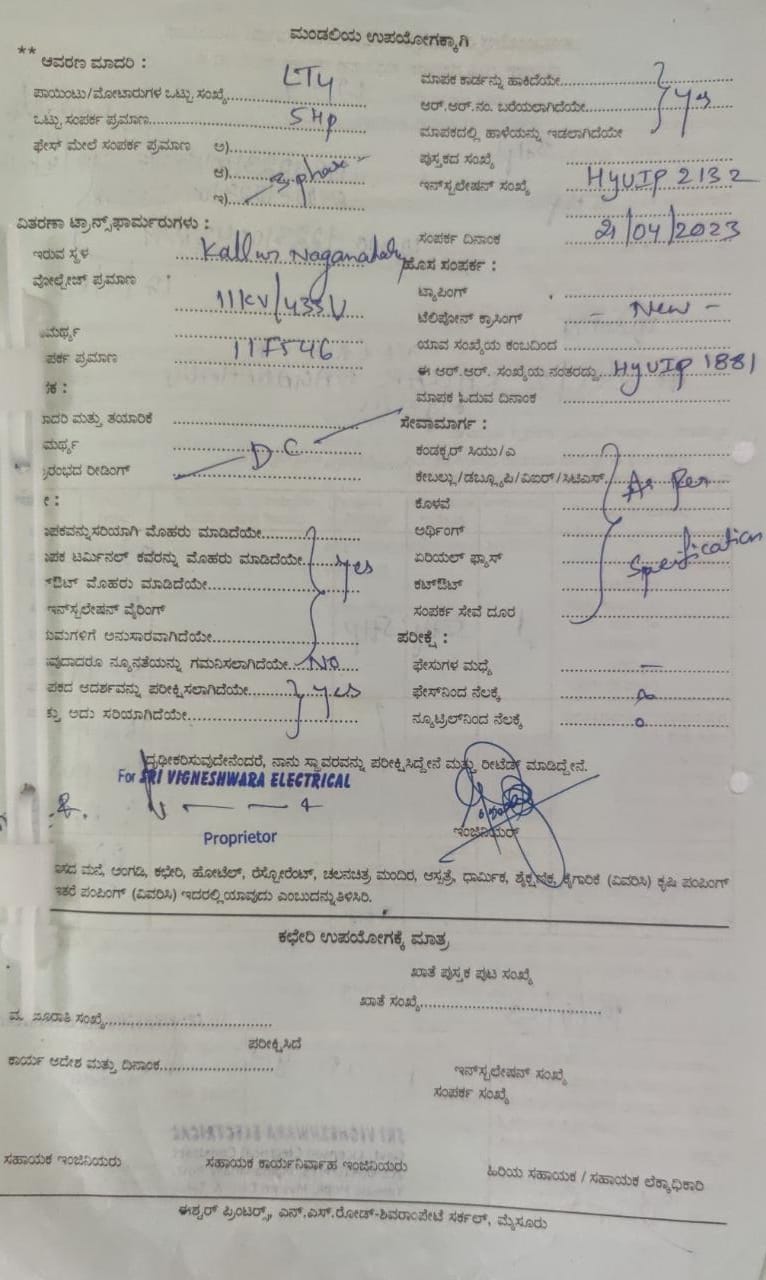 ಮಂಡಲಿಯ ಉಪಯೋಗಕ್ಕಾಗಿ
** ಆವರಣ ಮಾದರಿ :
ಪಾಯಿಂಟು/ಮೋಟಾರುಗಳ ಒಟ್ಟು ಸಂಖ್ಯೆ LT4
ಒಟ್ಟು ಸಂಪರ್ಕ ಪ್ರಮಾಣ 5Hp
ಫೇಸ್ ಮೇಲೆ ಸಂಪರ್ಕ ಪ್ರಮಾಣ ಅ)
ಆ) 3-phase
ಇ)
ವಿತರಣಾ ಟ್ರಾನ್ಸ್‌ಫಾರ್ಮರುಗಳು :
ಇರುವ ಸ್ಥಳ Kallur Naganahaly
ವೋಲ್ಟೇಜ್ ಪ್ರಮಾಣ
11KV/433V
ಮರ್ಥ್ಯ
ಪರ್ಕ ಪ್ರಮಾಣ 117546
ಕ :
ಮಾದರಿ ಮತ್ತು ತಯಾರಿಕೆ
ಮರ್ಥ್ಯ DC
ರಂಭದ ರೀಡಿಂಗ್
ೇ :
ಪಕವನ್ನು ಸರಿಯಾಗಿ ಮೊಹರು ಮಾಡಿದೆಯೇ
ಪಕ ಟರ್ಮಿನಲ್ ಕವರನ್ನು ಮೊಹರು ಮಾಡಿದೆಯೇ yes
ಔಟ್ ಮೊಹರು ಮಾಡಿದೆಯೇ
ಇನ್‌ಸ್ಟಲೇಷನ್ ವೈರಿಂಗ್
ಯಮಗಳಿಗೆ ಅನುಸಾರವಾಗಿದೆಯೇ
ವುದಾದರೂ ನ್ಯೂನತೆಯನ್ನು ಗಮನಿಸಲಾಗಿದೆಯೇ NO
ಪಕದ ಆದರ್ಶವನ್ನು ಪರೀಕ್ಷಿಸಲಾಗಿದೆಯೇ yes
ತ್ತು ಅದು ಸರಿಯಾಗಿದೆಯೇ
ಮಾಪಕ ಕಾರ್ಡನ್ನು ಹಾಕಿದೆಯೇ
ಆರ್.ಆರ್.ನಂ. ಬರೆಯಲಾಗಿದೆಯೇ yes
ಮಾಪಕದಲ್ಲಿ ಹಾಳೆಯನ್ನು ಇಡಲಾಗಿದೆಯೇ
ಪುಸ್ತಕದ ಸಂಖ್ಯೆ
ಇನ್‌ಸ್ಟಲೇಷನ್ ಸಂಖ್ಯೆ HyUIP 2132
ಸಂಪರ್ಕ ದಿನಾಂಕ 21/04/2023
ಹೊಸ ಸಂಪರ್ಕ :
ಟ್ಯಾಪಿಂಗ್
ಟೆಲಿಫೋನ್ ಕ್ರಾಸಿಂಗ್ - New -
ಯಾವ ಸಂಖ್ಯೆಯ ಕಂಬದಿಂದ
ಈ ಆರ್.ಆರ್. ಸಂಖ್ಯೆಯ ನಂತರದ್ದು HyUIP 1881
ಮಾಪಕ ಓದುವ ದಿನಾಂಕ
ಸೇವಾಮಾರ್ಗ :
ಕಂಡಕ್ಟರ್ ಸಿಯು/ಎ
ಕೇಬಲ್ಲು/ಡಬ್ಲ್ಯೂಪಿ/ವಿಐಆರ್/ಸಿಟಿಎಸ್ As Per
ಕೊಳವೆ
ಅರ್ಥಿಂಗ್
ಏರಿಯಲ್ ಫ್ಯೂಸ್ Speification
ಕಟ್‌ಔಟ್
ಸಂಪರ್ಕ ಸೇವೆ ದೂರ
ಪರೀಕ್ಷೆ :
ಫೇಸುಗಳ ಮಧ್ಯೆ —
ಫೇಸ್‌ನಿಂದ ನೆಲಕ್ಕೆ
ನ್ಯೂಟ್ರಲ್‌ನಿಂದ ನೆಲಕ್ಕೆ o
ದೃಢೀಕರಿಸುವುದೇನೆಂದರೆ, ನಾನು ಸ್ಥಾವರವನ್ನು ಪರೀಕ್ಷಿಸಿದ್ದೇನೆ ಮತ್ತು ರೀಟೆಡ್ ಮಾಡಿದ್ದೇನೆ.
For SRI VIGNESHWARA ELECTRICAL
Proprietor
ಇಂಜಿನಿಯರ್
ವಾಸದ ಮನೆ, ಅಂಗಡಿ, ಕಛೇರಿ, ಹೋಟೆಲ್, ರೆಸ್ಟೋರೆಂಟ್, ಚಲನಚಿತ್ರ ಮಂದಿರ, ಆಸ್ಪತ್ರೆ, ಧಾರ್ಮಿಕ, ಶೈಕ್ಷಣಿಕ, ಕೈಗಾರಿಕೆ (ವಿವರಿಸಿ) ಕೃಷಿ ಪಂಪಿಂಗ್
ಇತರೆ ಪಂಪಿಂಗ್ (ವಿವರಿಸಿ) ಇದರಲ್ಲಿ ಯಾವುದು ಎಂಬುದನ್ನು ತಿಳಿಸಿರಿ.
ಕಛೇರಿ ಉಪಯೋಗಕ್ಕೆ ಮಾತ್ರ
ಖಾತೆ ಪುಸ್ತಕ ಪುಟ ಸಂಖ್ಯೆ
ಖಾತೆ ಸಂಖ್ಯೆ
ಮಂಜೂರಾತಿ ಸಂಖ್ಯೆ
ಪರೀಕ್ಷಿಸಿದೆ
ಕಾರ್ಯ ಆದೇಶ ಮತ್ತು ದಿನಾಂಕ
ಇನ್‌ಸ್ಟಲೇಷನ್ ಸಂಖ್ಯೆ
ಸಂಪರ್ಕ ಸಂಖ್ಯೆ
ಸಹಾಯಕ ಇಂಜಿನಿಯರು
ಸಹಾಯಕ ಕಾರ್ಯನಿರ್ವಾಹ ಇಂಜಿನಿಯರು
ಹಿರಿಯ ಸಹಾಯಕ / ಸಹಾಯಕ ಲೆಕ್ಕಾಧಿಕಾರಿ
ಈಶ್ವರ್ ಪ್ರಿಂಟರ್ಸ್, ಎನ್.ಎಸ್.ರೋಡ್-ಶಿವರಾಂಪೇಟೆ ಸರ್ಕಲ್, ಮೈಸೂರು